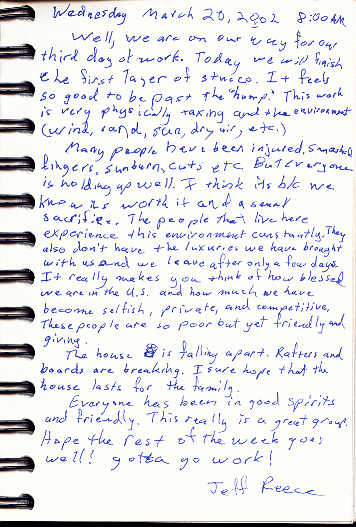 Wednesday March 20, 2002 8:00AM
Well, we are on our way for our
third day of work. Today we will finish
the first layer of stucco. It feels
so good to be past the "hump." This work
is very physically taxing and the environment
(wind, sand, sun, dry air, etc.)
Many people have been injured, smashed
fingers, sunburn, cuts etc. But everyone
is holding up well. I think its b/c we
know its worth it and a small
sacrifice. The people that live here
experience this environment constantly. They
also don't have the luxuries we have brought
with us and we leave after only a few days.
It really makes you think of how blessed
we are in the U.S. and how much we have
become selfish, private, and competitive.
These people are so poor but yet friendly and
giving.
The house is falling apart. Rafters and
boards are breaking. I sure hope that the
house lasts for the family.
Everyone has been in good spirits
and friendly. This really is a great group.
Hope the rest of the week goes
well! gotta go work!
Jeff Reece